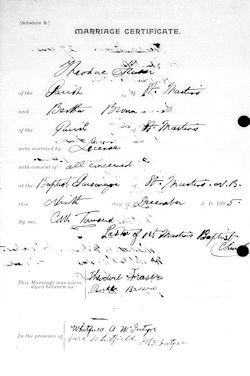 [Schedule B.]
MARRIAGE CERTIFICATE.
Theodore Fraser
of the Parish of St. Martins
and Bertha Brown
of the Parish of St. Martins
were married by License
with consent of all concerned
at the Baptist Parsonage St. Martins N.B.
this Ninth day of December A. D. 1905.
By me,
Pastor of 1st St Martins Baptist
Church
This Marriage was solem-
nized between us
Theodore Fraser
Bertha Brown
In the presence of
Whitfield A McIntyre
Mrs Whitfield McIntyre